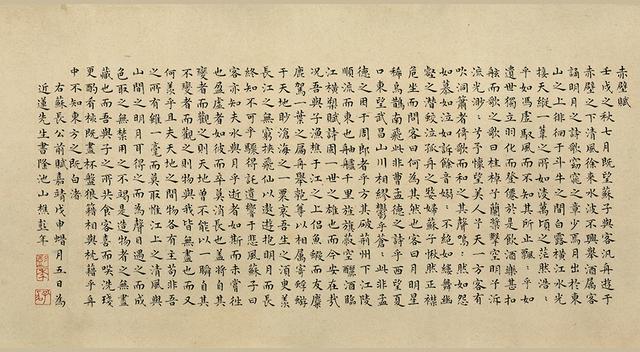 赤壁賦
壬戌之秋七月既望蘇子與客汎舟遊于
赤壁之下清風徐來水波不興舉酒屬客
誦明月之詩歌窈窕之章少焉月出於東
山之上徘徊于斗牛之間白露橫江水光
接天縱一葦之所如淩萬頃之茫然浩〻
乎如馮虛馭風而不知其所止飄〻乎如
遺世獨立羽化而登僊於是飲酒樂甚扣
舷而歌之歌曰桂棹兮蘭槳擊空明兮泝
流光渺〻兮予懷望美人兮天一方客有
吹洞簫者倚歌而和之其聲嗚〻然如怨
如慕如泣如訴餘音嫋〻不絕如縷舞幽
壑之潛蛟泣孤舟之嫠婦蘇子愀然正襟
危坐而問客曰何為其然也客曰月明星
稀烏鵲南飛此非曹孟德之詩乎西望夏
口東望武昌山川相繆鬱乎蒼〻此非孟
德之困于周郎者乎方其破荊州下江陵
順流而東也舳艫千里旌旗蔽空釃酒臨
江橫槊賦詩固一世之雄也而今安在哉
況吾與子漁樵于江之上侶魚鰕而友麋
鹿駕一葉之扁舟舉匏尊以相屬寄蜉蝣
于天地眇滄海之一粟哀吾生之須臾羨
長江之無窮挾飛仙以遨遊抱明月而長
終知不可乎驟得託遺響于悲風蘇子曰
客亦知夫水與月乎逝者如斯而未嘗往
也盈虛者如彼而卒莫消長也蓋將自其
變者而觀之則天地曾不能以一瞬自其
不變者而觀之則物與我皆無盡也而又
何羨乎且夫天地之間物各有主苟非吾
之所有雖一毫而莫取惟江上之清風與
山間之明月耳得之而為聲目遇之而成
色取之無禁用之不竭是造物者之無盡
藏也而吾與子之所共食客喜而笑洗琖
更酌肴核既盡杯盤狼籍相與枕藉乎舟
中不知東方之既白
右蘇長公前賦嘉靖戊申臘月五日為
近蓮先生書隆池山樵彭年